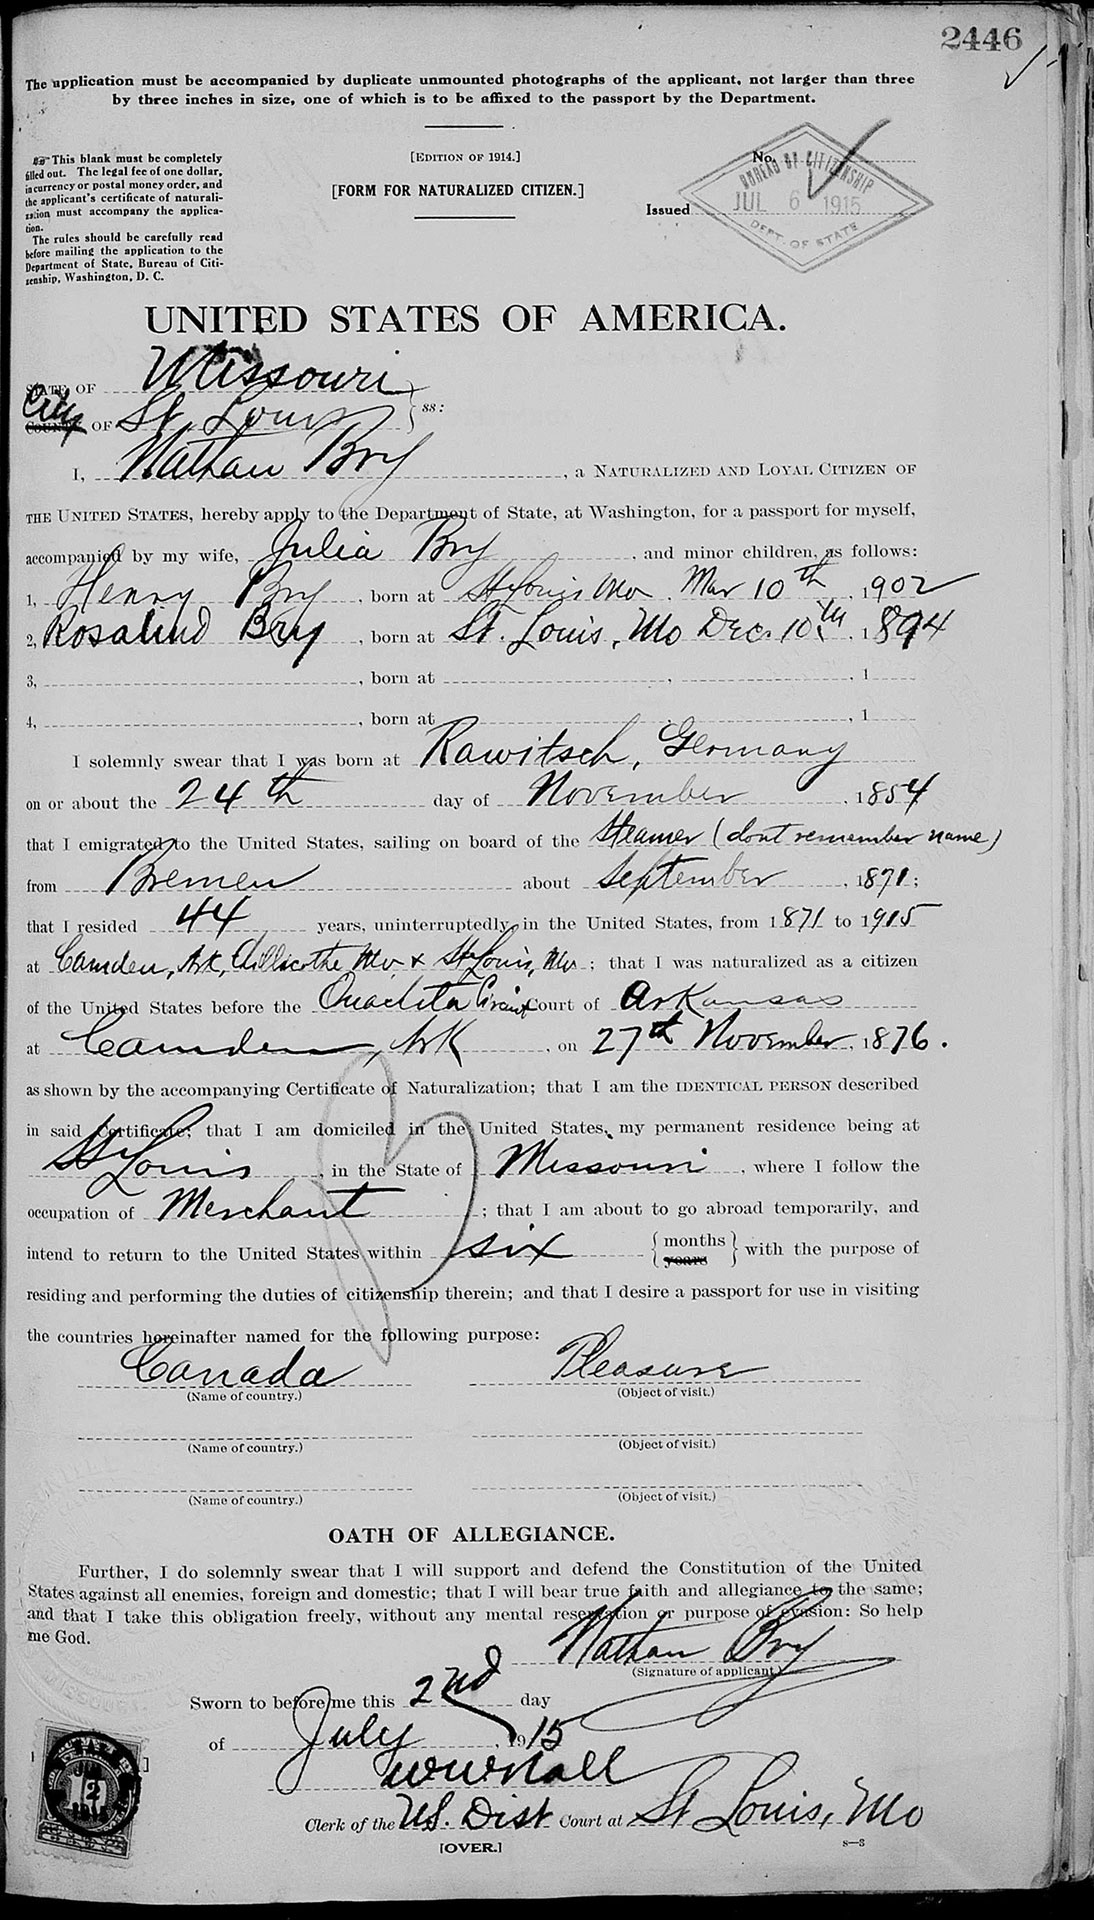 2446
The application must be accompanied by duplicate unmounted photographs of the applicant, not larger than three
by three inches in size, one of which is to be affixed to the passport by the Department.
This blank must be completely
filled out. The legal fee of one dollar,
in currency or postal money order, and
the applicant's certificate of naturali-
zation must accompany the applica-
tion.
The rules should be carefully read
before mailing the application to the
Department of State, Bureau of Citi-
zenship, Washington, D. C.
[EDITION OF 1914.]
[FORM FOR NATURALIZED CITIZEN.]
No.
Issued
BUREAU OF CITIZENSHIP
JUL 6 1915
DEPT. OF STATE
UNITED STATES OF AMERICA.
STATE OF Missouri
City
COUNTY OF St Louis ss:
I, Nathan Bry, a NATURALIZED AND LOYAL CITIZEN OF
THE UNITED STATES, hereby apply to the Department of State, at Washington, for a passport for myself,
accompanied by my wife, Julia Bry, and minor children, as follows:
1, Henry Bry, born at St Louis Mo, Mar 10th, 1902
2, Rosalind Bry, born at St. Louis, Mo Dec. 10th, 1894
3, , born at , , 1
4, , born at , , 1
I solemnly swear that I was born at Rawitsch, Germany
on or about the 24th day of November, 1854
that I emigrated to the United States, sailing on board of the Steamer (dont remember name)
from Bremen about September, 1871;
that I resided 44 years, uninterruptedly, in the United States, from 1871 to 1915
at Camden, Ark, Chillicothe Mo & St Louis, Mo; that I was naturalized as a citizen
of the United States before the Ouachita Circuit Court of Arkansas
at Camden, Ark, on 27th November, 1876.
as shown by the accompanying Certificate of Naturalization; that I am the IDENTICAL PERSON described
in said Certificate; that I am domiciled in the United States, my permanent residence being at
St Louis, in the State of Missouri, where I follow the
occupation of Merchant; that I am about to go abroad temporarily, and
intend to return to the United States within six {months years} with the purpose of
residing and performing the duties of citizenship therein; and that I desire a passport for use in visiting
the countries hereinafter named for the following purpose:
Canada Pleasure
(Name of country.) (Object of visit.)
(Name of country.) (Object of visit.)
(Name of country.) (Object of visit.)
OATH OF ALLEGIANCE.
Further, I do solemnly swear that I will support and defend the Constitution of the United
States against all enemies, foreign and domestic; that I will bear true faith and allegiance to the same;
and that I take this obligation freely, without any mental reservation or purpose of evasion: So help
me God.
Nathan Bry
(Signature of applicant.)
Sworn to before me this 2nd day
of July, 1915
W W Nall
Clerk of the U.S. Dist Court at St Louis, Mo
[OVER.]
8—3